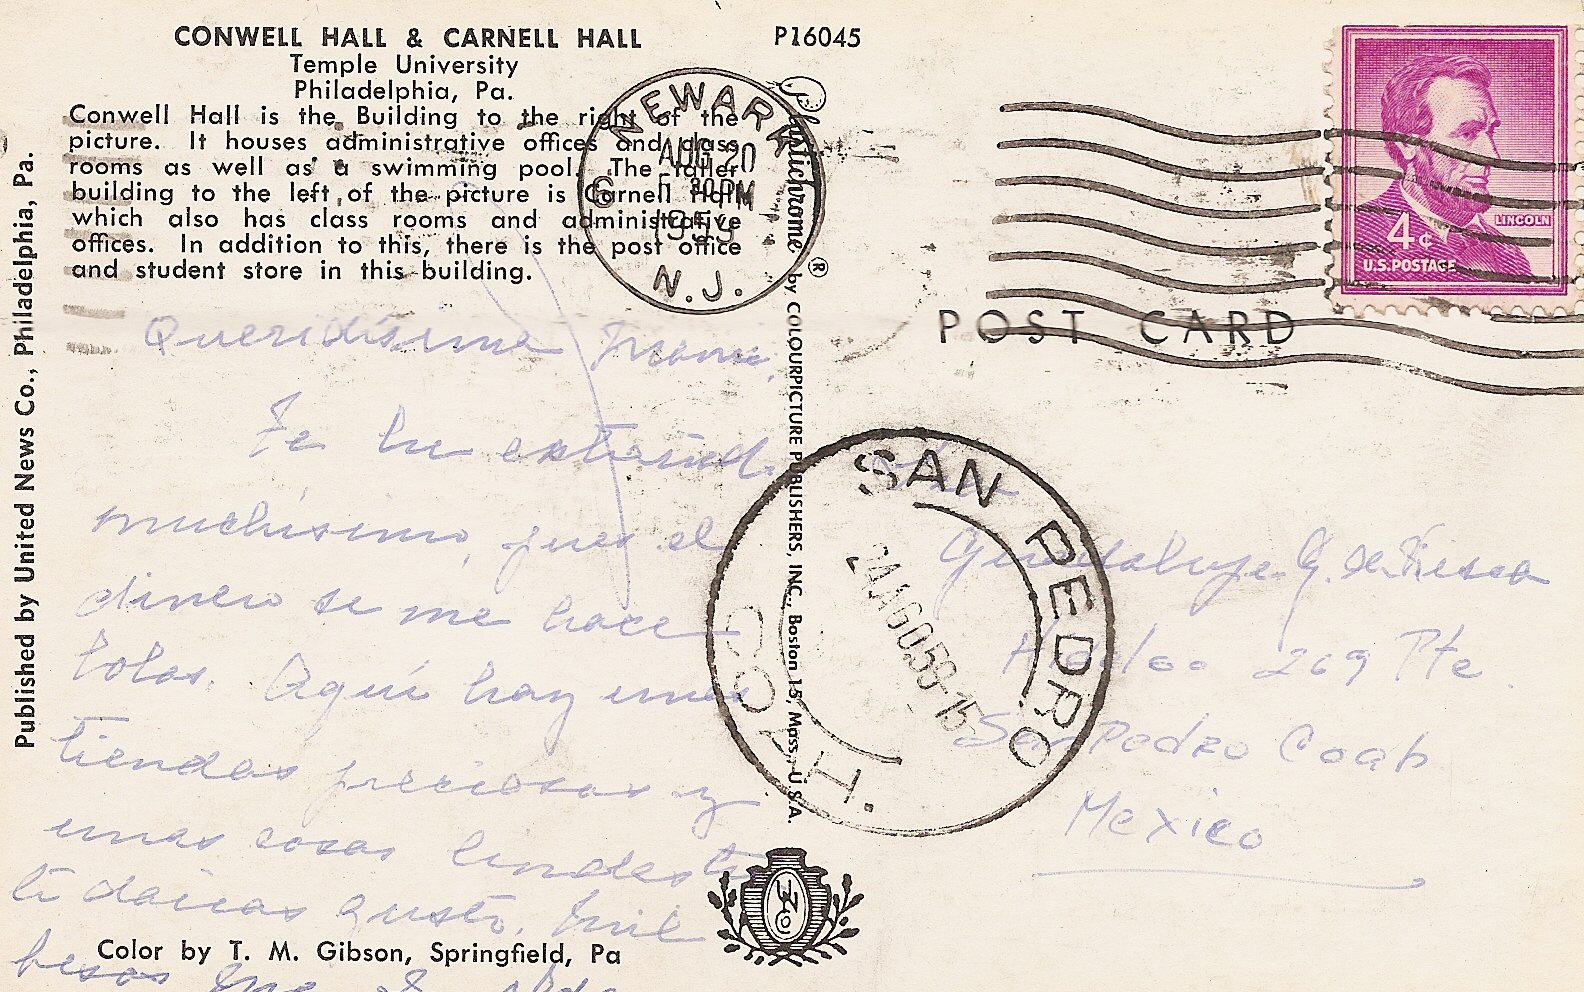 CONWELL HALL & CARNELL HALL
Temple University
Philadelphia, Pa.
Conwell Hall is the Building to the right of the
picture. It houses administrative offices and class
rooms as well as a swimming pool. The taller
building to the left of the picture is Carnell Hall
which also has class rooms and administrative
offices. In addition to this, there is the post office
and student store in this building.
P16045
Published by United News Co., Philadelphia, Pa.
Plastichrome ® by COLOURPICTURE PUBLISHERS, INC., Boston 15, Mass., U.S.A.
NEWARK
AUG 20
30 PM
1959
N.J.
LINCOLN
4¢
U.S.POSTAGE
POST CARD
Queridísima
Te he
muchísimo, pues el
dinero se me hace
bolas. Aquí hay unas
tiendas preciosas y
unas cosas
gusto. Mil
besos
SAN PEDRO
24AGO.59-15
COAH.
Guadalupe G. de
Hidalgo 269 Pte.
San Pedro Coah
Mexico
Color by T. M. Gibson, Springfield, Pa